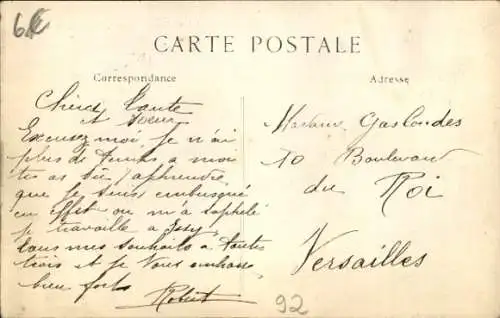 6
CARTE POSTALE
Correspondance
Adresse
Chère Tante
et Soeur
Excusez moi je n'ai
plus de temps a moi
tu as dû apprendre
que je suis embusqué
en effet on m'a rappelé
je travaille a Issy
tous mes souhaits a toutes
trois et je vous embrasse
bien fort
Robert
Madame Gaslondes
10 Boulevard
du Roi
Versailles
92